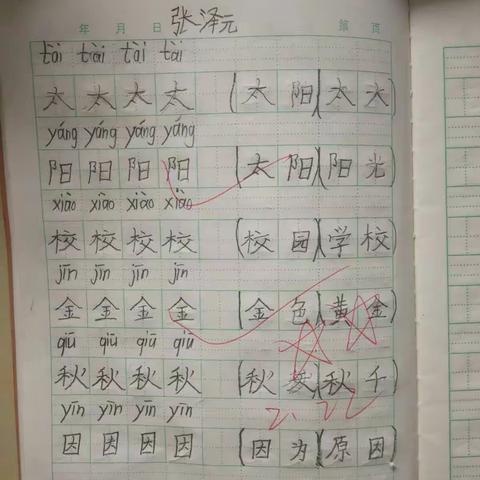 年 月 日 张泽元 第 页
tài tài tài tài
太 太 太 太 (太 阳)(太 大)
yáng yáng yáng yáng
阳 阳 阳 阳 (太 阳)(阳 光)
xiào xiào xiào xiào
校 校 校 校 (校 园)(学 校)
jīn jīn jīn jīn
金 金 金 金 (金 色)(黄 金)
qiū qiū qiū qiū
秋 秋 秋 秋 (秋 )(秋 千)
yīn yīn yīn yīn
因 因 因 因 (因 为)(原 因)